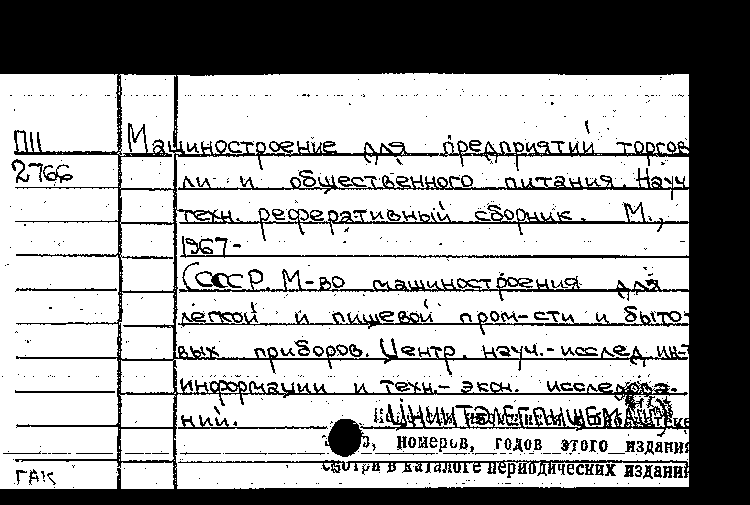 ПII Машиностроение для предприятий торгов
2766 ли и общественного питания. Науч
техн. реферативный сборник. М.,
1967-
(СССР. М-во машиностроения для
легкой и пищевой пром-сти и быто-
вых приборов. Центр. науч.-исслед. ин-т
информации и техн.- экон. исследова-
ний.
номеров, годов этого издания
смотри в каталоге периодических изданий
ГАК